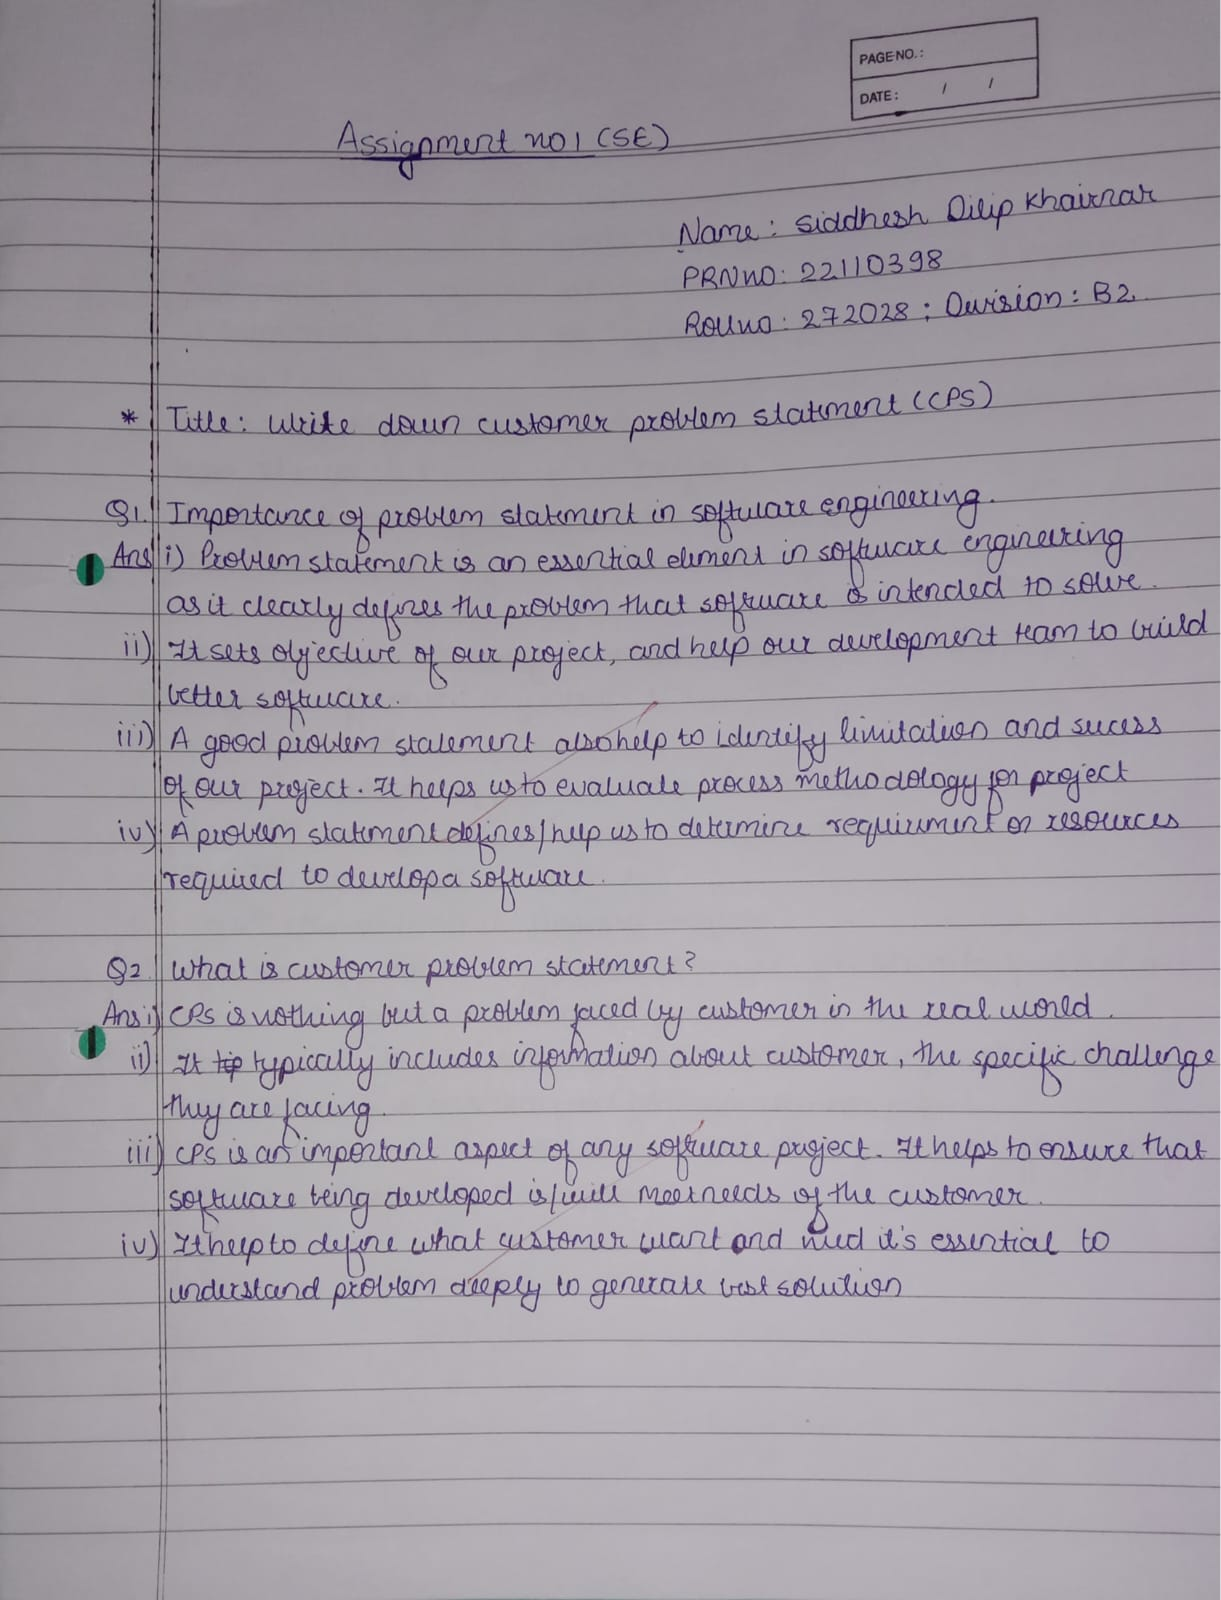 PAGE NO.:
DATE: / /
Assignment no 1 (SE)
Name: Siddhesh Dilip Khairnar
PRN no: 22110398
Roll no: 272028; Division: B2
* Title: Write down customer problem statement (CPS)
Q1. Importance of problem statement in software engineering.
Ans i) Problem statement is an essential element in software engineering
as it clearly defines the problem that software is intended to solve.
ii) It sets objective of our project, and help our development team to build
better software.
iii) A good problem statement also help to identify limitation and sucess
of our project. It helps us to evaluate process methodology for project
iv) A problem statement defines/help us to determine requirement or resources
required to develop a software.
Q2. What is customer problem statement?
Ans i) CPS is nothing but a problem faced by customer in the real world.
ii) It typically includes information about customer, the specific challenge
they are facing.
iii) CPS is an important aspect of any software project. It helps to ensure that
software being developed is/will meet needs of the customer.
iv) It help to define what customer want and need it's essential to
understand problem deeply to generate best solution